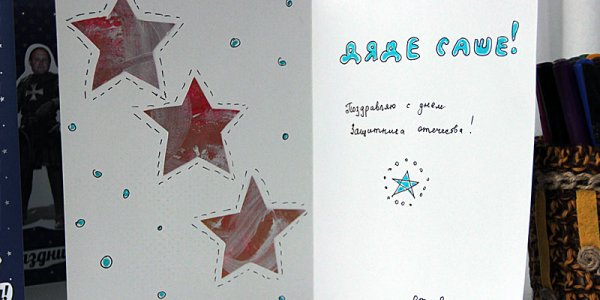 ДЯДЕ САШЕ!
Поздравляю с днем
Защитника отечества!